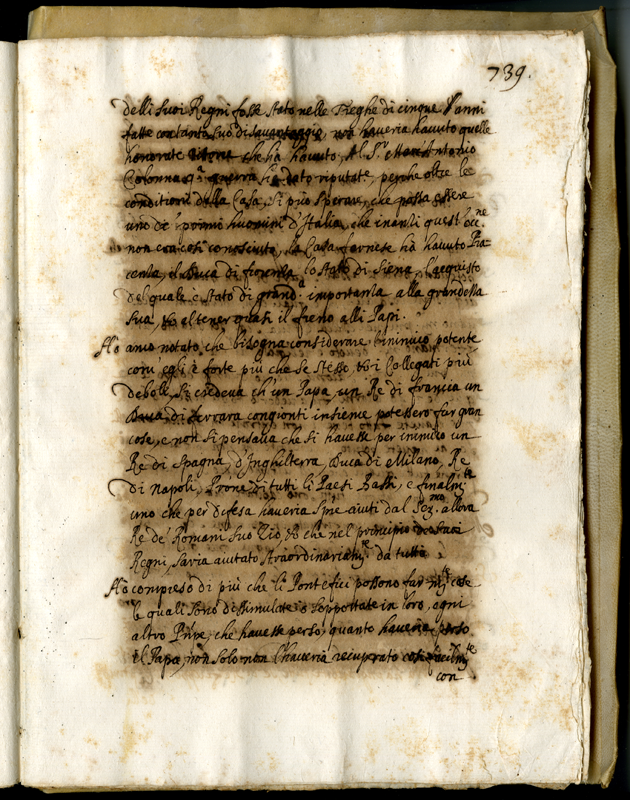 739.
delli suoi Regni fosse stato nelle Pieghe di cinque Vanni
fatte con tanto suo disavantaggio, non haveria havuto quelle
honorate che ha havuto, Al S.r Marc Antonio
Colonna guerra si è dato riputat.e, perche oltre le
conditioni della Casa, si può sperare, che possa essere
uno de' primi huomini d'Italia, che inanti quest' occ.ne
non era così conosciuto, la Casa farnese hà havuto Pia=
cenza, il Duca di fiorenza lo stato di Siena, l'acquisto
del quale è stato di grand.a importanza alla grandezza
sua, et al tener quasi il freno alli Papi.
Ho anco notato che bisogna considerare l'inimico potente
com' egli è forte più che se stesso, et i Collegati più
deboli, si credeva ch'un Papa, un Re di francia un
Duca di ferrara congionti insieme potessero far gran
cose, e non si pensava che si havesse per inimico un
Re di Spagna, d'Inghilterra, Duca di Milano, Re
di Napoli, Prone di tutti li Paesi Bassi, e finalm.te
uno che per difesa haveria Sp.re aiuti dal Sez.mo allora
Re de' Romani suo Zio, et che nel principio de suoi
Regni, saria aiutato straordinariam.te da tutti.
Ho compreso di più che li Pontefici possono far m.te cose
le quali sono dissimulate o sopportate in loro, ogni
altro Pnpe, che havesse perso, quanto haveria perso
il Papa, non solo non l'haveria recuperato così facilm.te
con